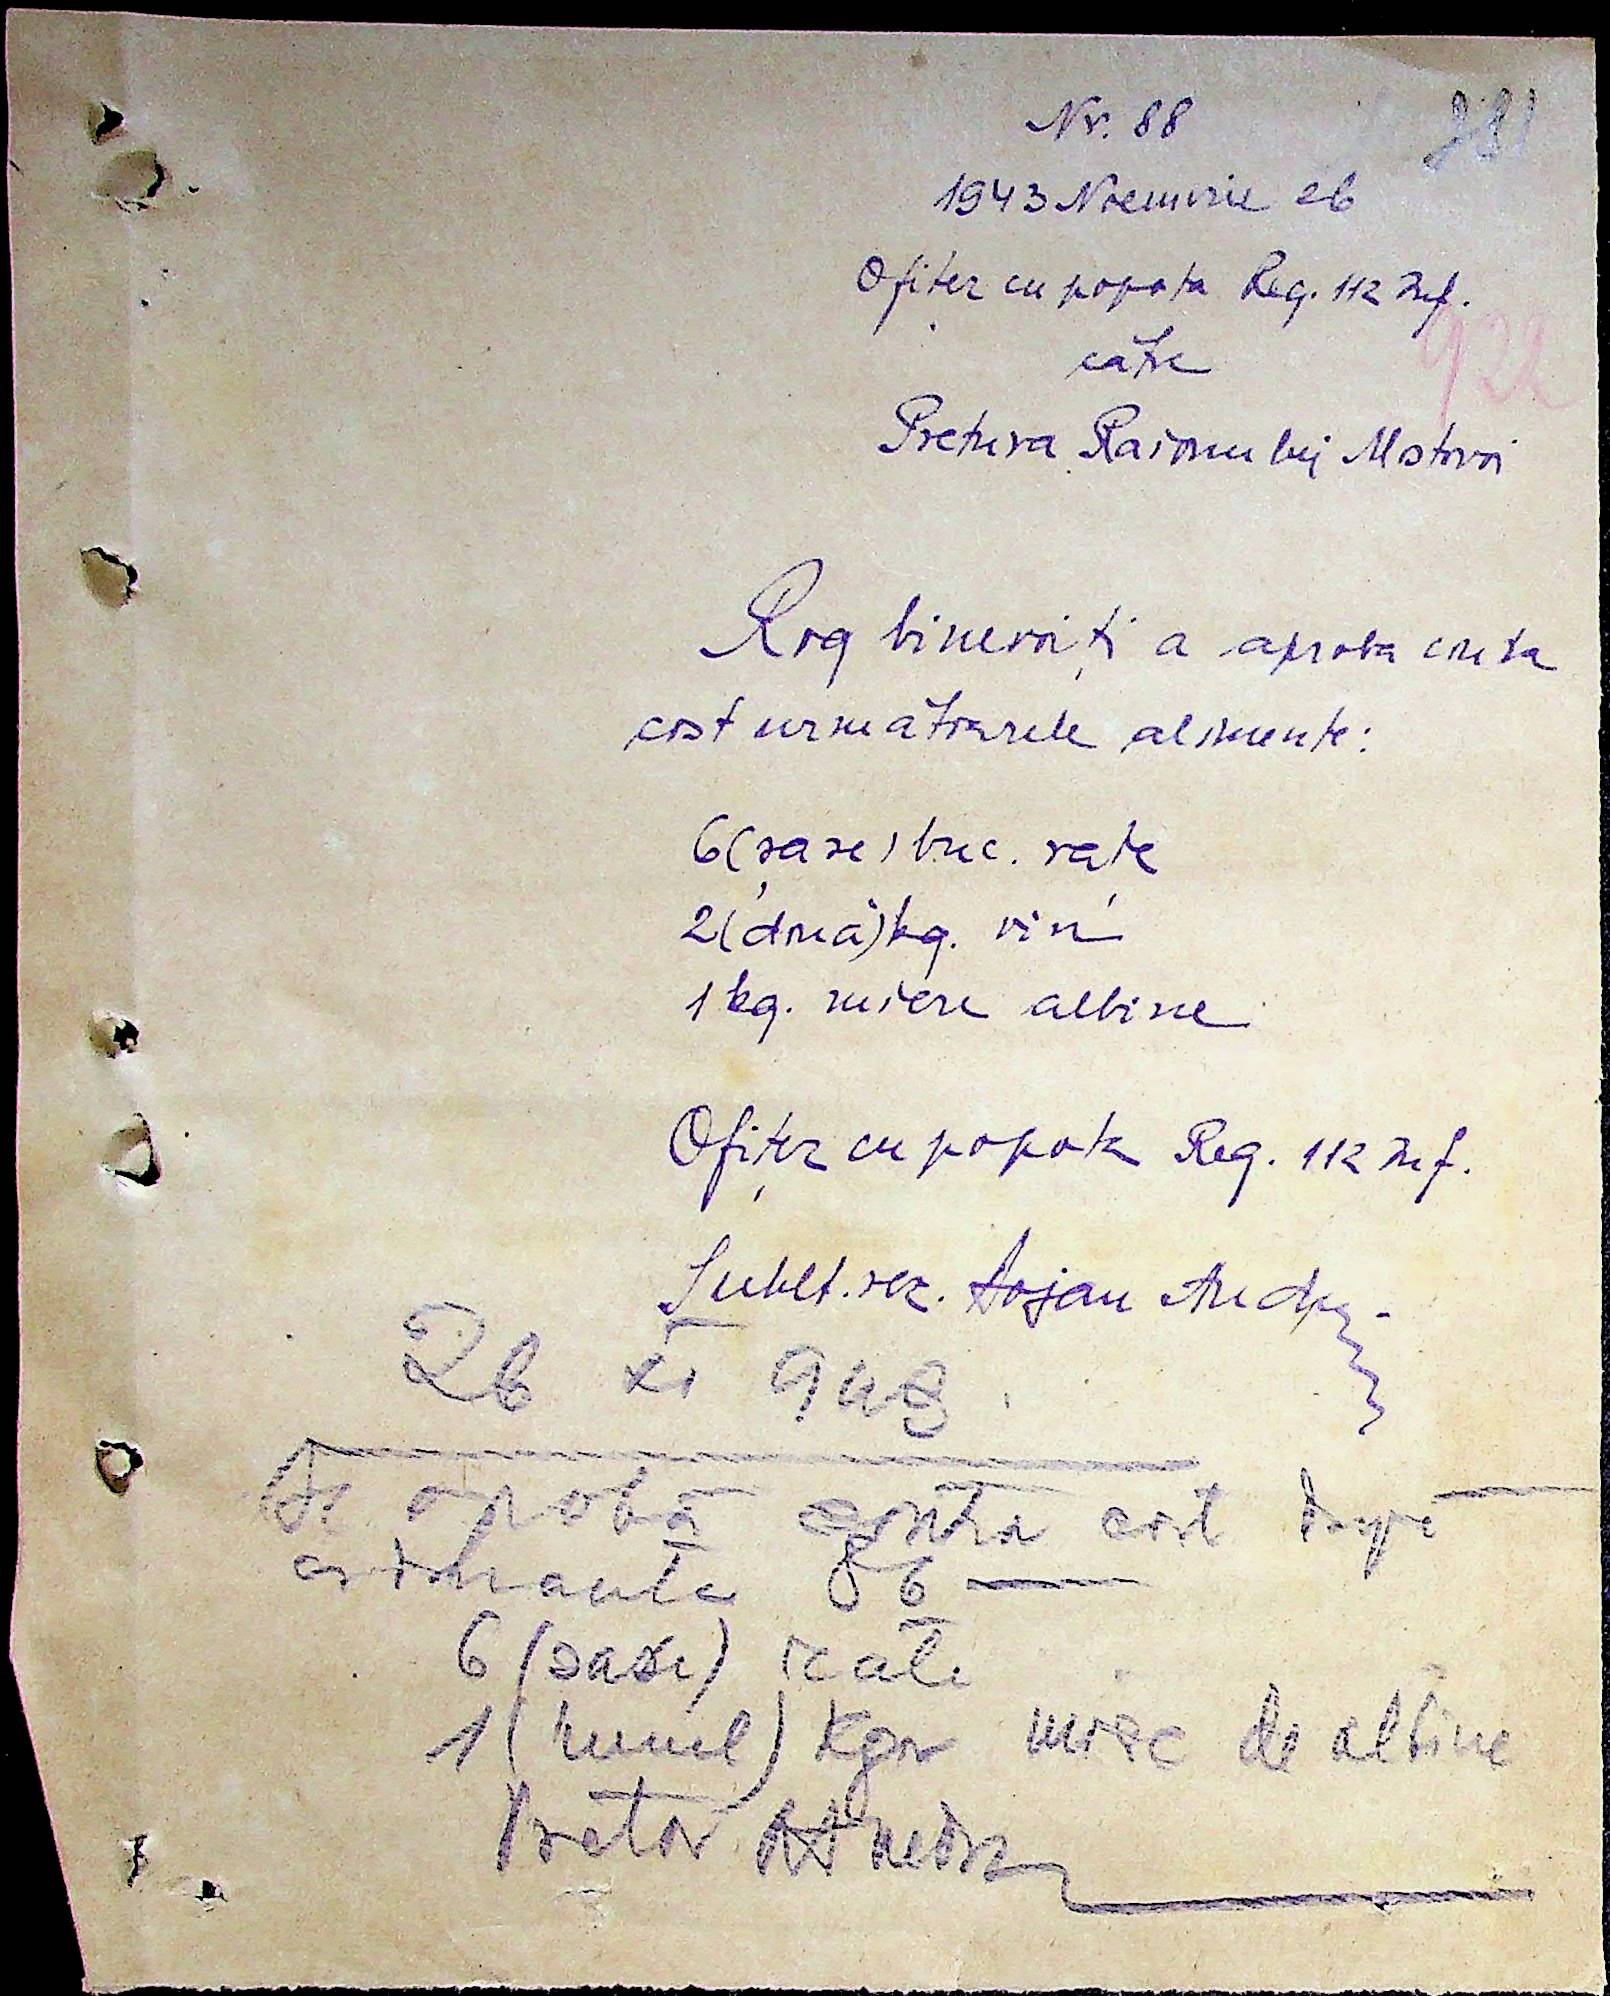 Nr. 88
281
1943 Noemvrie 26
Ofițer cu popota Reg. 112 Inf.
către
922
Pretura Raionului Mostovoi
Rog binevoiți a aproba contra
cost următoarele alimente:
6 (șase) buc. rațe
2 (două) kg. vin
1 kg. miere albine
Ofițer cu popota Reg. 112 Inf.
Sublt. rez. Andrei
26 XI 943
Se aprobă contra cost după
ordonanța 86
6 (șase) rațe
1 (unul) kgr miere de albine
Pretor